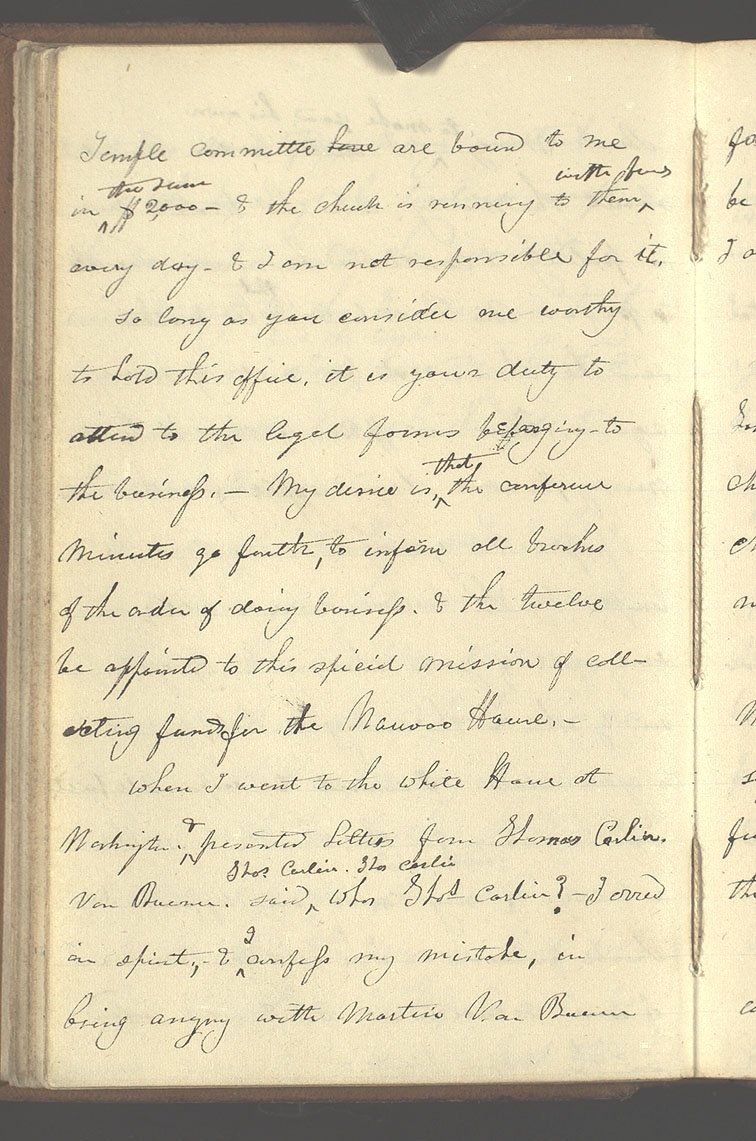 Temple committee have are bound to me
in the sum $2,000 — & the church is running to them with funds
every day - & I am not responsible for it.
so long as you consider me worthy
to hold this office, it is your duty to
attend to the legal forms belonging to
the business. — My desire is, that the conference
minutes go forth, to inform all branches
of the order of doing business. & the twelve
be appointed to this special mission of coll-
ecting funds for the Nauvoo House. —
when I went to the white House at
Washington. & presented letters from Thomas Carlin.
Van Buren. said, Thos Carlin. Thos carlin whos Thos Carlin? — I erred
in spirit, - & I confess my mistake, in
being angry with Martin Van Buren
fo
be
I a
ch
c
n
s
fu
th